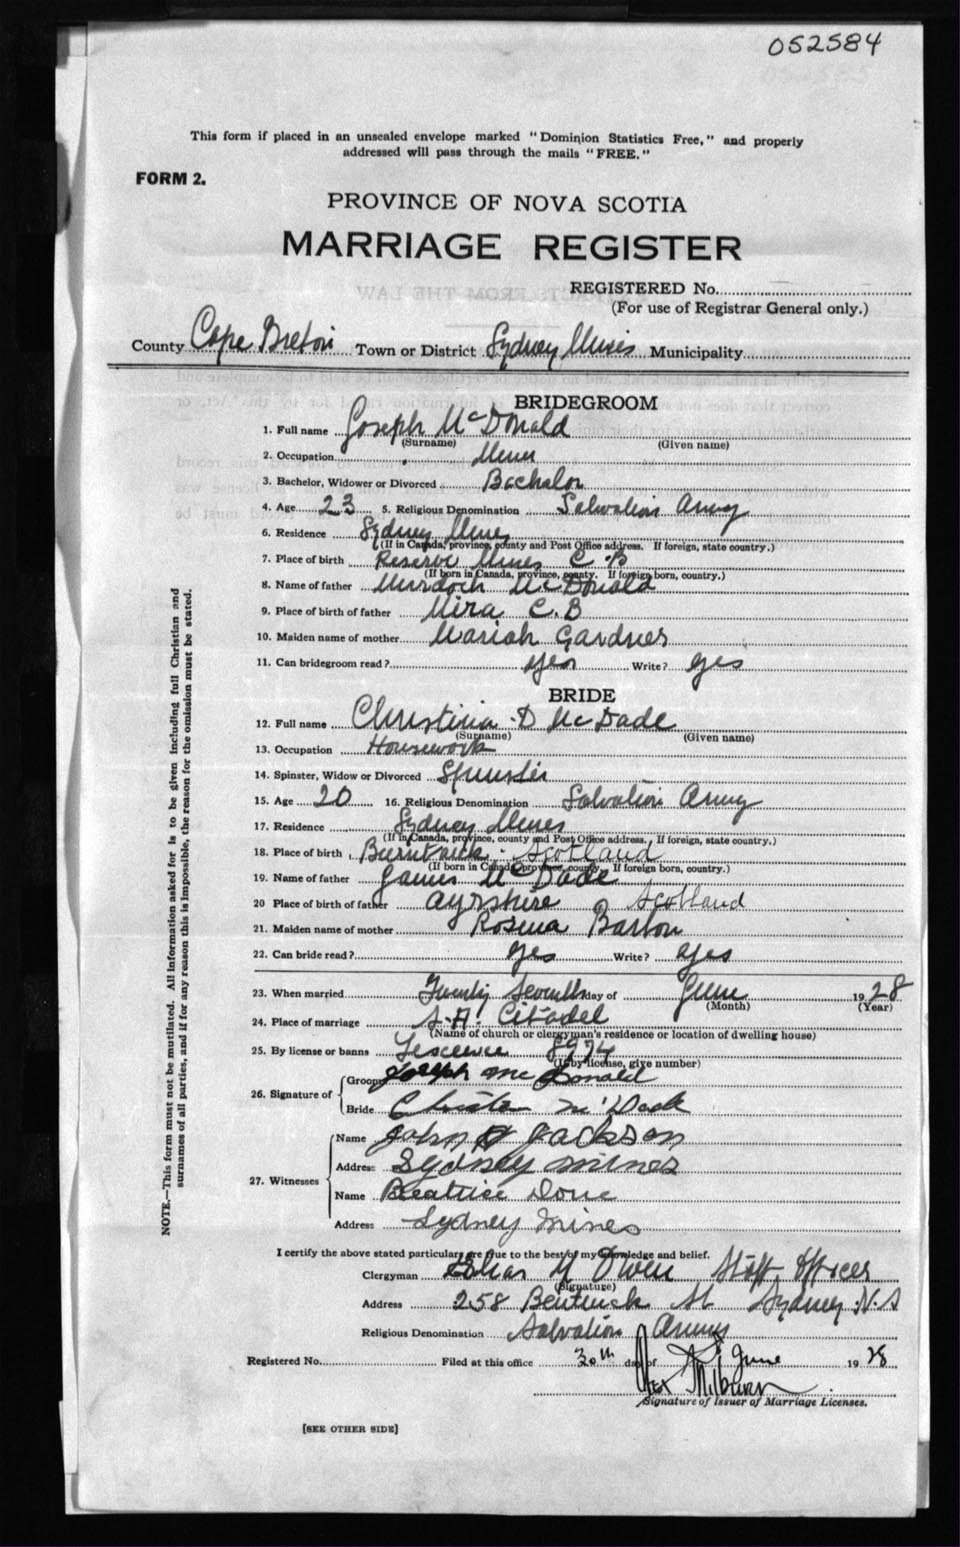 052584
This form if placed in an unsealed envelope marked "Dominion Statistics Free," and properly
addressed will pass through the mails "FREE."
FORM 2.
PROVINCE OF NOVA SCOTIA
MARRIAGE REGISTER
REGISTERED No.
(For use of Registrar General only.)
County Cape Breton Town or District Sydney Mines Municipality
BRIDEGROOM
1. Full name Joseph McDonald
(Surname) (Given name)
2. Occupation Miner
3. Bachelor, Widower or Divorced Bachelor
4. Age 23 5. Religious Denomination Salvation Army
6. Residence Sydney Mines
(If in Canada, province, county and Post Office address. If foreign, state country.)
7. Place of birth Reserve Mines C B
(If born in Canada, province, county. If foreign born, country.)
8. Name of father Murdoch McDonald
9. Place of birth of father Mira C.B
10. Maiden name of mother Mariah Gardner
11. Can bridegroom read? yes Write? yes
BRIDE
12. Full name Christina D McDade
(Surname) (Given name)
13. Occupation Housework
14. Spinster, Widow or Divorced Spinster
15. Age 20 16. Religious Denomination Salvation Army
17. Residence Sydney Mines
(If in Canada, province, county and Post Office address. If foreign, state country.)
18. Place of birth Scotland
(If born in Canada, province, county. If foreign born, country.)
19. Name of father James McDade
20 Place of birth of father Ayrshire Scotland
21. Maiden name of mother Rosina Barton
22. Can bride read? yes Write? yes
23. When married Twenty Seventh day of June 1928
(Month) (Year)
24. Place of marriage S.A. Citadel
(Name of church or clergyman's residence or location of dwelling house)
25. By license or banns 8974
(If by license, give number)
26. Signature of Groom Joseph McDonald
Bride McDade
27. Witnesses Name John Jackson
Address Sydney Mines
Name Beatrice Dove
Address Sydney Mines
I certify the above stated particulars are true to the best of my knowledge and belief.
Clergyman Owen Staff Officer
(Signature)
Address 258 Bentinck St Sydney N.S
Religious Denomination Salvation Army
Registered No. Filed at this office 30th day of June 1928
Milburn
Signature of Issuer of Marriage Licenses.
[SEE OTHER SIDE]
NOTE.—This form must not be mutilated. All information asked for is to be given including full Christian and
surnames of all parties, and if for any reason this is impossible, the reason for the omission must be stated.